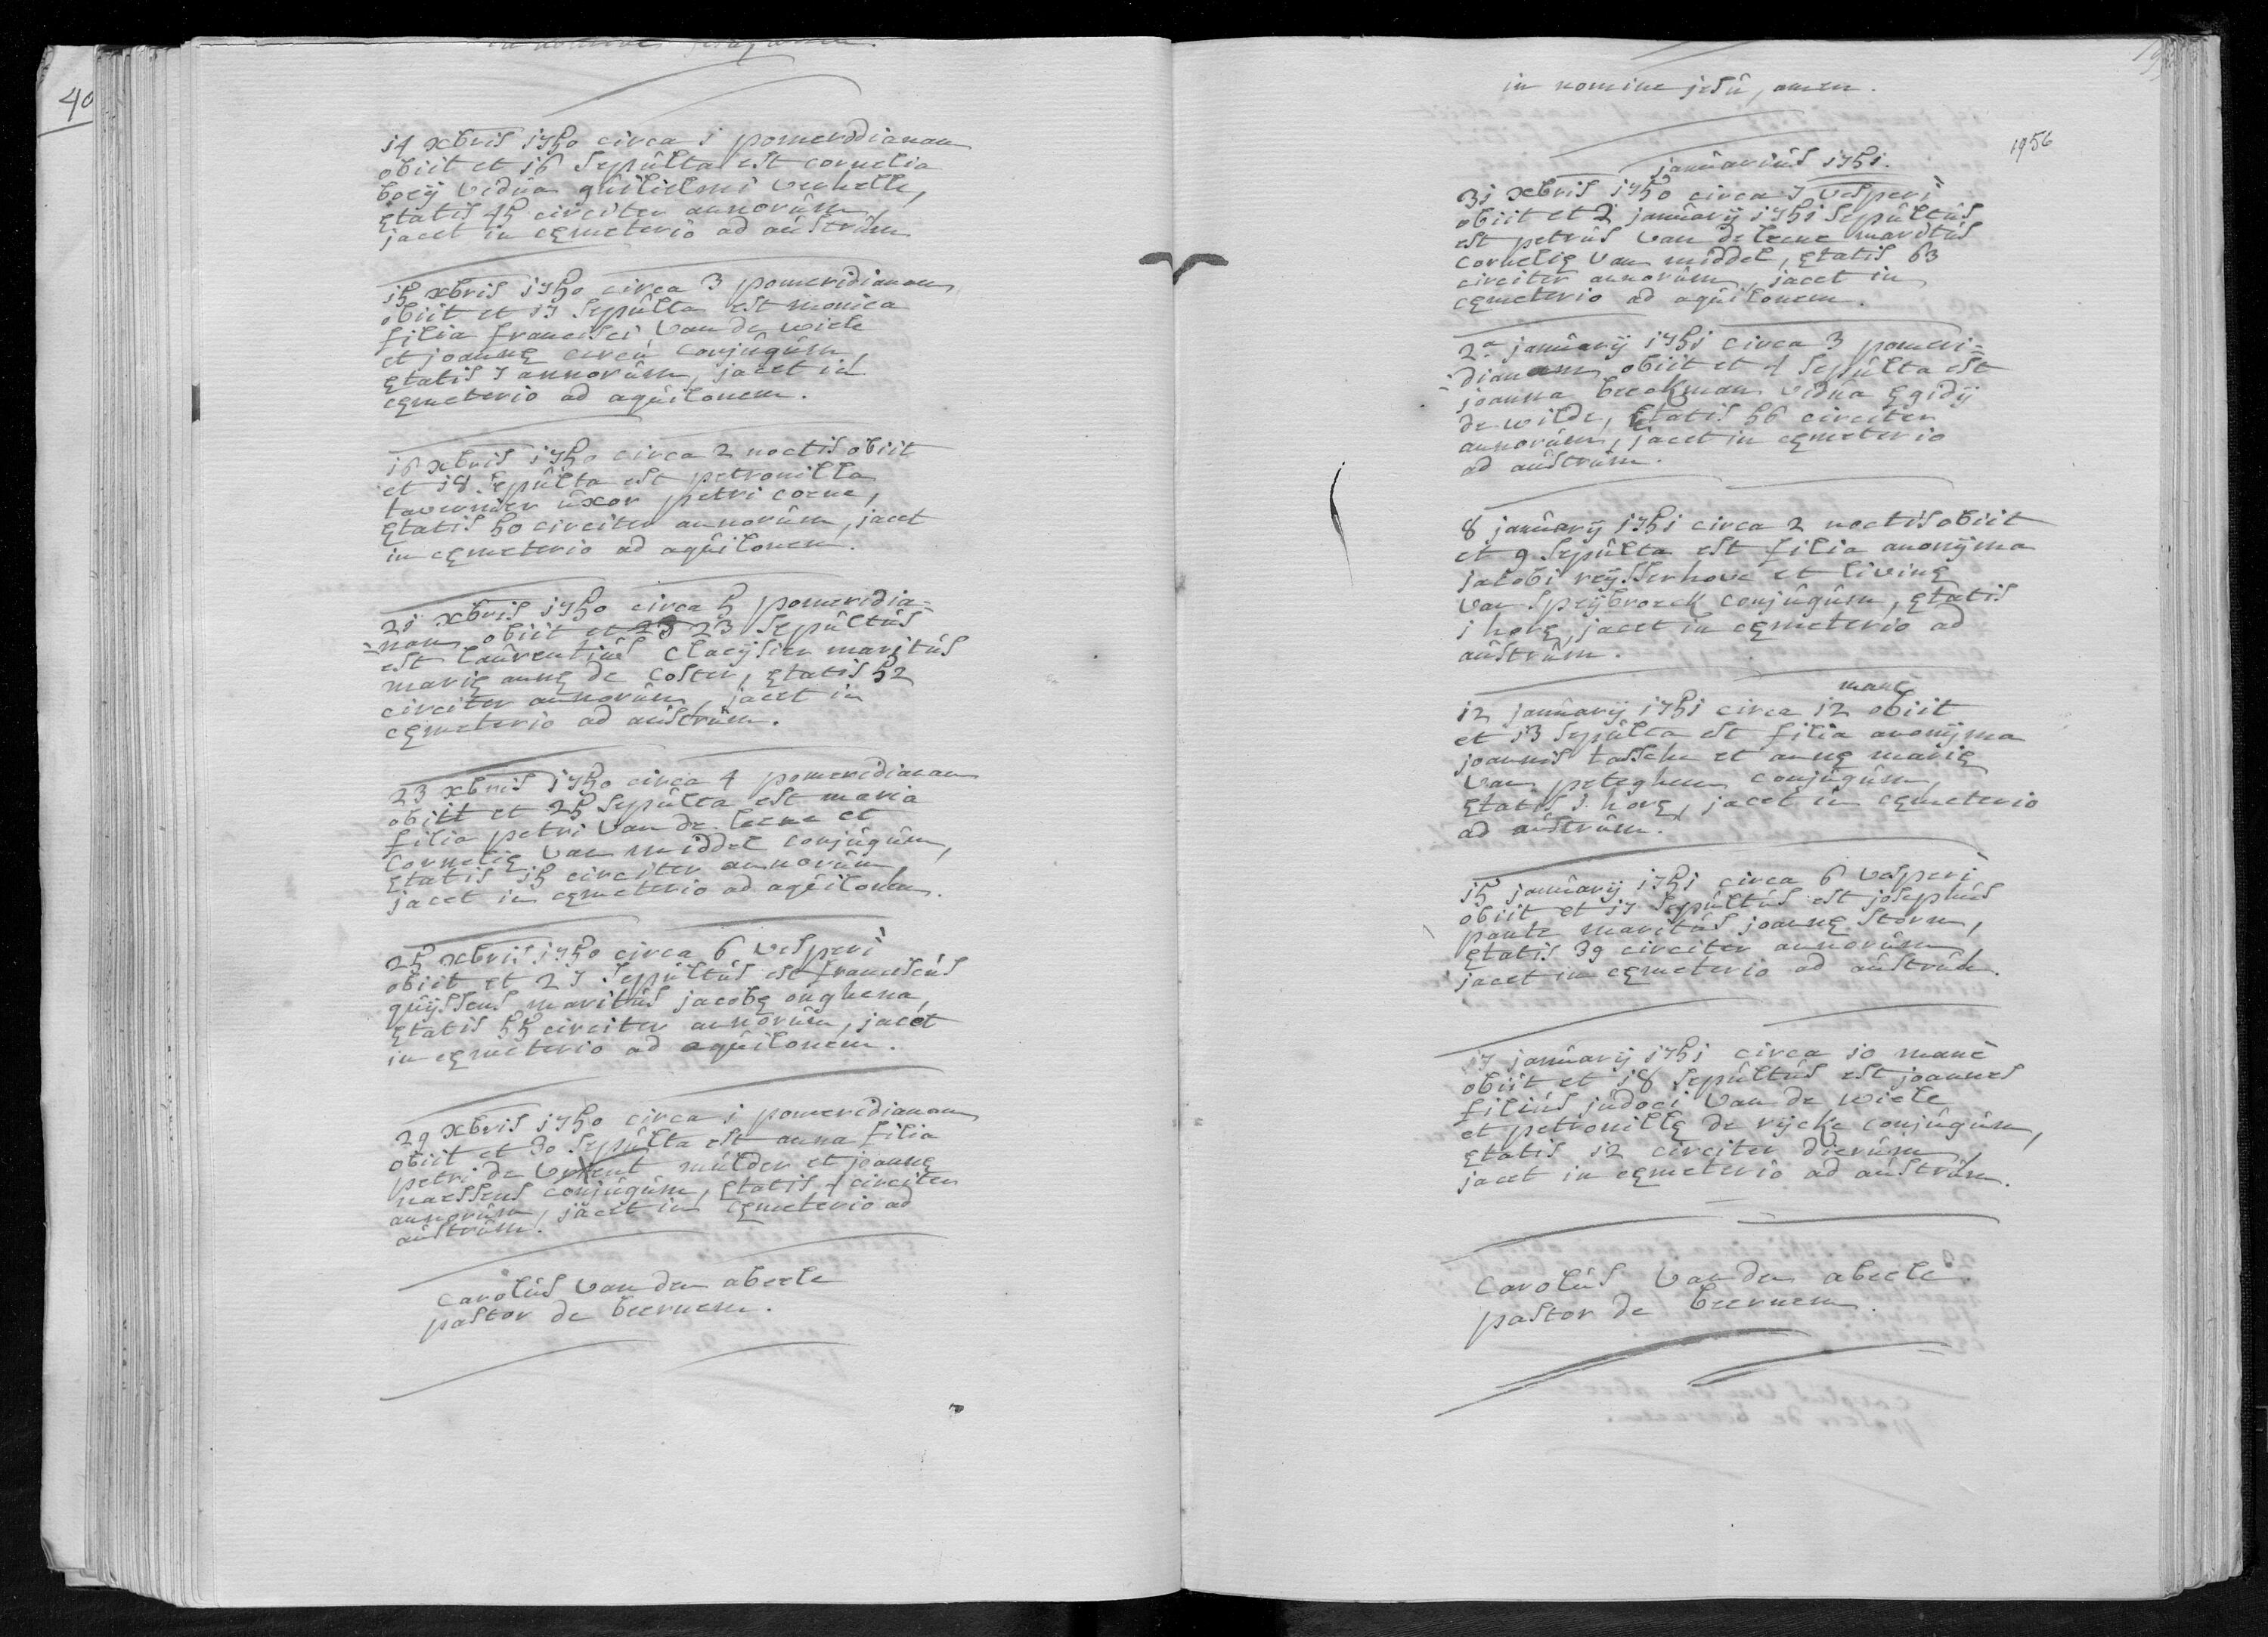 40
14 xbris 1750 circa i pomeridianam
obiit et 16 sepûlta est cornelia
boeÿ vidûa gûilielmi
ętatis 45 circiter annorûm,
jacet in cęmeterio ad aûstrûm
15 xbris 1750 circa 3 pomeridianam
obiit et 17 sepûlta est monica
filia francisci van de wiele
et joannę conjûgûm,
ętatis 7 annorûm, jacet in
cęmeterio ad aqûilonem.
16 xbris 1750 circa 2 noctis obiit
et 18 sepûlta est petronilla
tavernier ûxor petri coene,
ętatis 50 circiter annorûm, jacet
in cęmeterio ad aqûilonem.
21 xbris 1750 circa 5 pomeridia=
=nam obiit et 23 sepûltûs
est laûrentiûs claeÿsier maritûs
marię annę de coster, ętatis 52
circiter annorûm, jacet in
cęmeterio ad aûstrûm.
23 xbris 1750 circa 4 pomeridianam
obiit et 25 sepûlta est maria
filia petri van de leene et
cornelię van middel conjûgûm,
ętatis 15 circiter annorûm
jacet in cęmeterio ad aqûilonem.
25 xbris 1750 circa 6 vesperì
obiit et 27 sepûltûs est franciscûs
qûÿssens maritûs jacobę onghena,
ętatis 55 circiter annorûm, jacet
in cęmeterio ad aqûilonem.
29 xbris 1750 circa i pomeridianam
obiit et 30 sepûlta est anna filia
petri de mûlder et joannę
naessens conjûgûm, ętatis 4 circiter
annorûm, jacet in cęmeterio ad
aûstrûm.
carolûs van den abeele
pastor de beernem.
in nomine jesû, amen.
1956
janûariûs 1751.
31 xbris 1750 circa 7 vesperì
obiit et 2 janûarÿ 1751 sepûltûs
est petrûs van de leene maritûs
cornelię van middel, ętatis 63
circiter annorûm, jacet in
cęmeterio ad aqûilonem.
2a janûarÿ 1751 circa 3 pomeri=
=dianam obiit et 4 sepûlta est
joanna beeckman vidûa ęgidÿ
de wilde, ętatis 56 circiter
annorûm, jacet in cęmeterio
ad aûstrûm.
8 janûarÿ 1751 circa 2 noctis obiit
et 9 sepûlta est filia anonÿma
jacobi reÿsserhove et livinę
van speÿbroeck conjûgûm, ętatis
i horę, jacet in cęmeterio ad
aûstrûm.
manè
12 janûarÿ 1751 circa 12 obiit
et 13 sepûlta est filia anonÿma
joannis tassche et annę marię
van peteghem conjûgûm,
ętatis i horę, jacet in cęmeterio
ad aûstrûm.
15 janûarÿ 1751 circa 6 vesperì
obiit et 17 sepûltûs est josephûs
pante maritûs joannę storm,
ętatis 39 circiter annorûm,
jacet in cęmeterio ad aûstrûm.
17 janûarÿ 1751 circa 10 manè
obiit et 18 sepûltûs est joannes
filiûs jûdoci van de wiele
et petronillę de rÿcke conjûgûm,
ętatis 12 circiter dierûm,
jacet in cęmeterio ad aûstrûm.
carolûs van den abeele.
pastor de beernem.